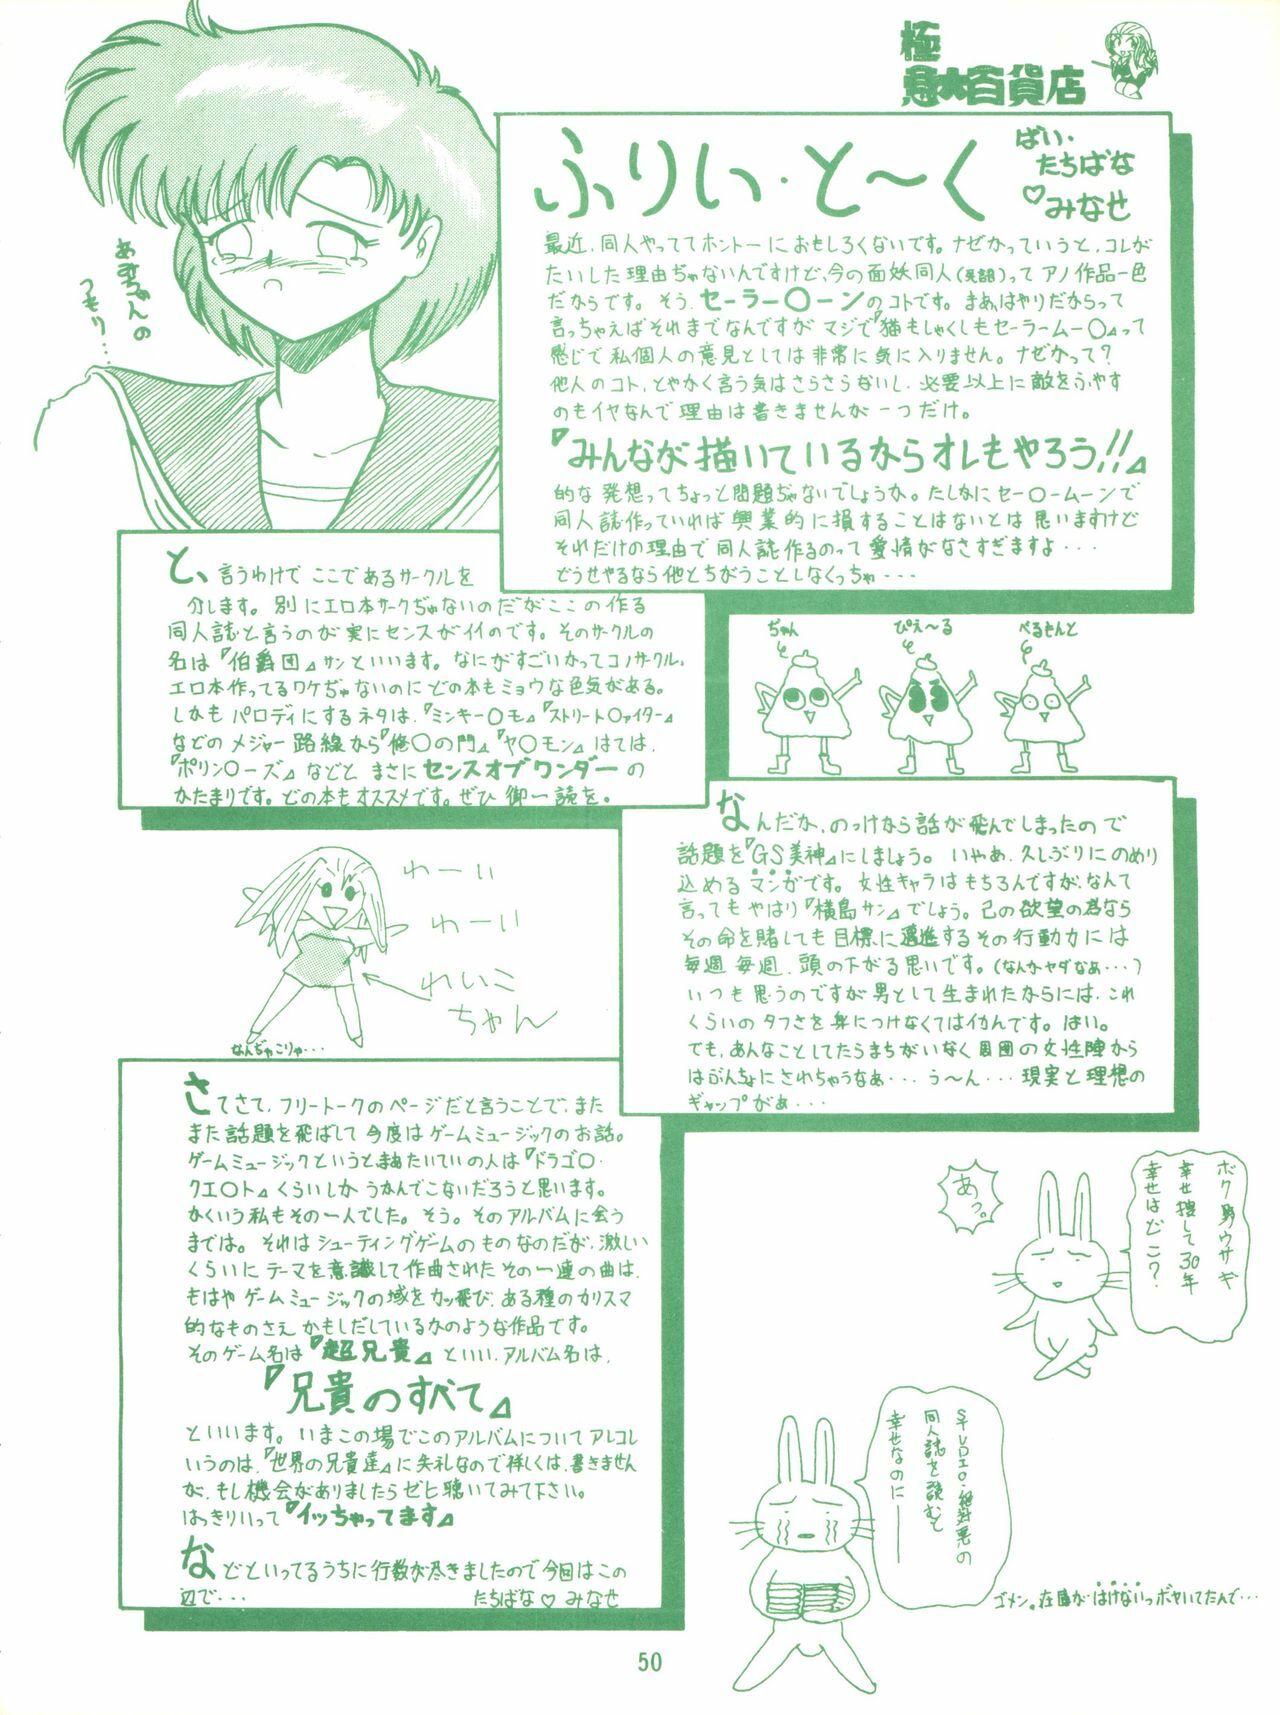 極
悪大百貨店
ふりい・と〜く
ばい・
たちばな
♡みなせ
あみちゃんの
つもり…
最近、同人やっててホントーにおもしろくないです。ナゼかっていうと、コレが
たいした理由ぢゃないんですけど、今の面妖同人(発語)ってアノ作品一色
だからです。そう、セーラー〇ーンのコトです。まぁはやりだからって
言っちゃえばそれまでなんですがマジで『猫もしゃくしもセーラームー〇』って
感じで私個人の意見としては非常に気に入りません。ナゼかって?
他人のコト、とやかく言う気はさらさらないし、必要以上に敵をふやす
のもイヤなんで理由は書きませんが一つだけ。
『みんなが描いているからオレもやろう!!』
的な発想ってちょっと問題ぢゃないでしょうか。たしかにセー〇ームーンで
同人誌作っていれば興業的に損することはないとは思いますけど
それだけの理由で同人誌作るのって愛情がなさすぎますよ…
どうせやるなら他とちがうことしなくっちゃ…
と、言うわけでここであるサークルを
介します。別にエロ本サークぢゃないのだがここの作る
同人誌と言うのが実にセンスがイイのです。そのサークルの
名は『伯爵団』サンといいます。なにがすごいかってコノサークル、
エロ本作ってるワケぢゃないのにどの本もミョウな色気がある。
しかもパロディにするネタは、『ミンキー〇モ』『ストリート〇ァイター』
などのメジャー路線から『修〇の門』『ヤ〇モン』はては、
『ポリン〇ーズ』などとまさにセンスオブワンダーの
かたまりです。どの本もオススメです。ぜひ御一読を。
ぢゃん
ぴえ〜る
べるもんと
なんだか、のっけから話が飛んでしまったので
話題を『GS美神』にしましょう。いやあ、久しぶりにのめり
込めるマンガです。女性キャラはもちろんですが、なんて
言ってもやはり『横島サン』でしょう。己の欲望の為なら
その命を賭しても目標に邁進するその行動力には
毎週毎週、頭の下がる思いです。(なんかヤダなぁ…)
いつも思うのですが男として生まれたからには、これ
くらいのタフさを身につけなくてはイカんです。はい。
でも、あんなことしてたらまちがいなく周囲の女性陣から
はぶんちょにされちゃうなぁ…う〜ん…現実と理想の
ギャップがぁ…
わーい
わーい
れいこ
ちゃん
なんぢゃこりゃ…
さてさて、フリートークのページだと言うことで、また
また話題を飛ばして今度はゲームミュージックのお話。
ゲームミュージックというと、まぁたいていの人は『ドラゴ〇・
クエ〇ト』くらいしかうかんでこないだろうと思います。
かくいう私もその一人でした。そう。そのアルバムに会う
までは。それはシューティングゲームのものなのだが、激しい
くらいにテーマを意識して作曲されたその一連の曲は、
もはやゲームミュージックの域をカッ飛び、ある種のカリスマ
的なものさえかもしだしているかのような作品です。
そのゲーム名は『超兄貴』といい、アルバム名は、
『兄貴のすべて』
といいます。いまこの場でこのアルバムについてアレコレ
いうのは、『世界の兄貴達』に失礼なので詳しくは、書きません
が、もし機会がありましたらゼヒ聴いてみて下さい。
はっきりいって『イッちゃってます』
などといってるうちに行数が尽きましたので今回はこの
辺で…　たちばな♡みなせ
ボク野ウサギ
幸せ捜して30年
幸せはどこ?
あっ。
STUDIO・絶対悪の
同人誌を読むと
幸せなのにー
ゴメン。在庫がはけないっボヤいてたんで…
50